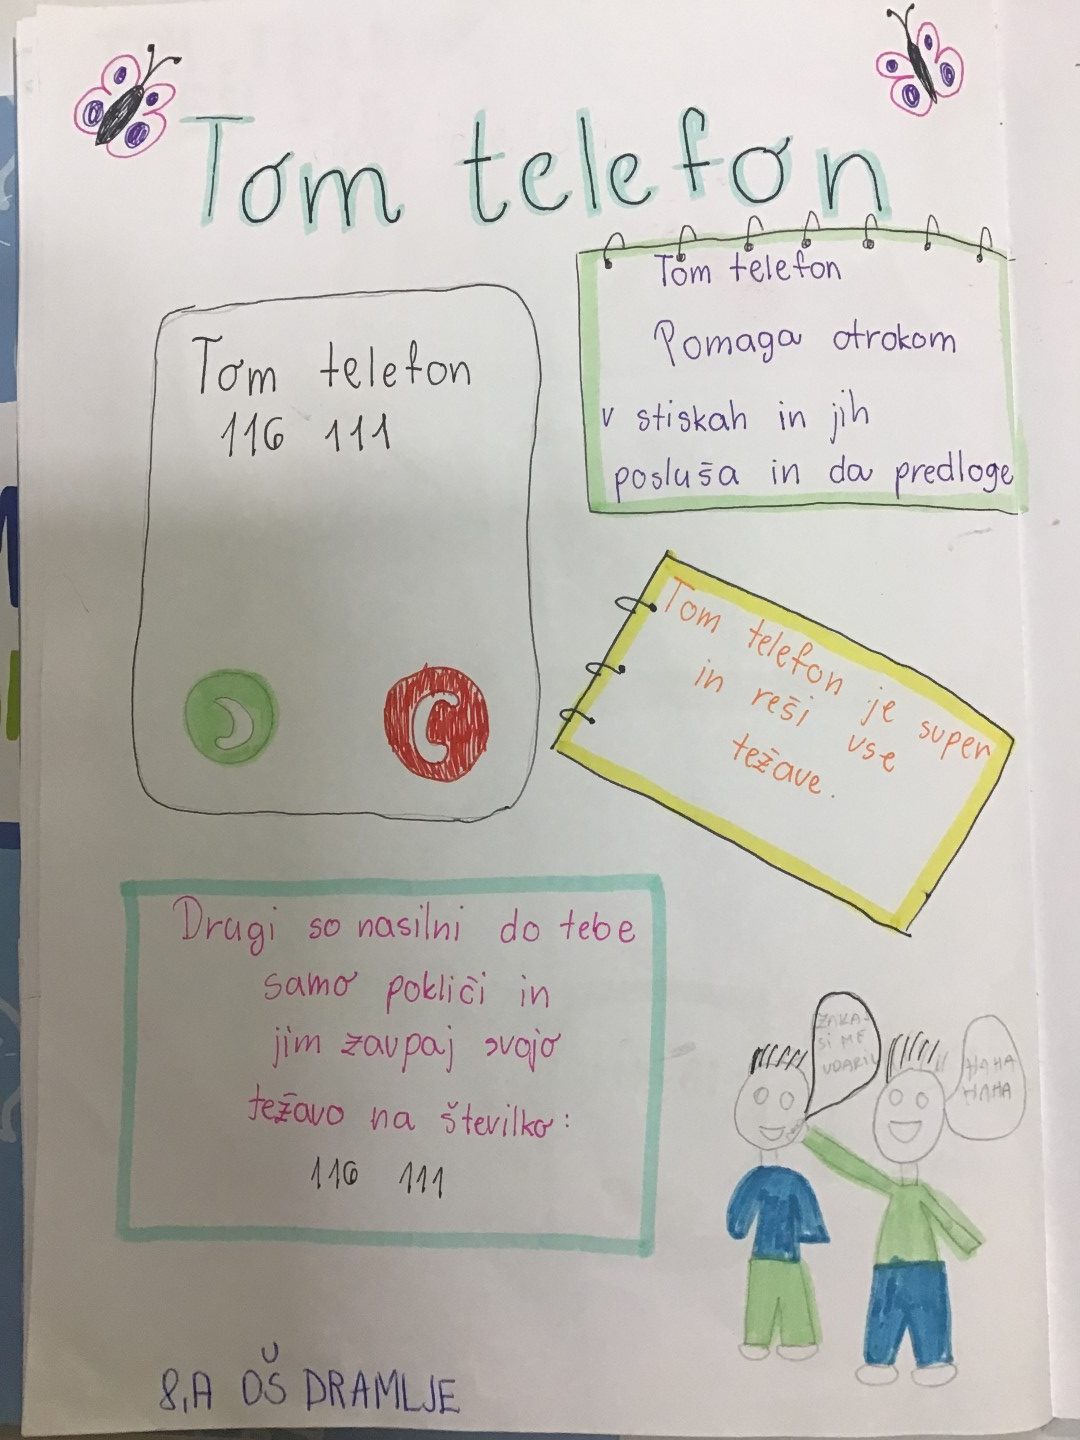 Tom telefon
Tom telefon
116 111
Tom telefon
Pomaga otrokom
v stiskah in jih
posluša in da predloge
Tom telefon je super
in reši vse
težave.
Drugi so nasilni do tebe
samo pokliči in
jim zaupaj svojo
težavo na številko:
116 111
ZAKAJ
SI ME
UDARIL
HAHA
HAHA
8,A OŠ DRAMLJE